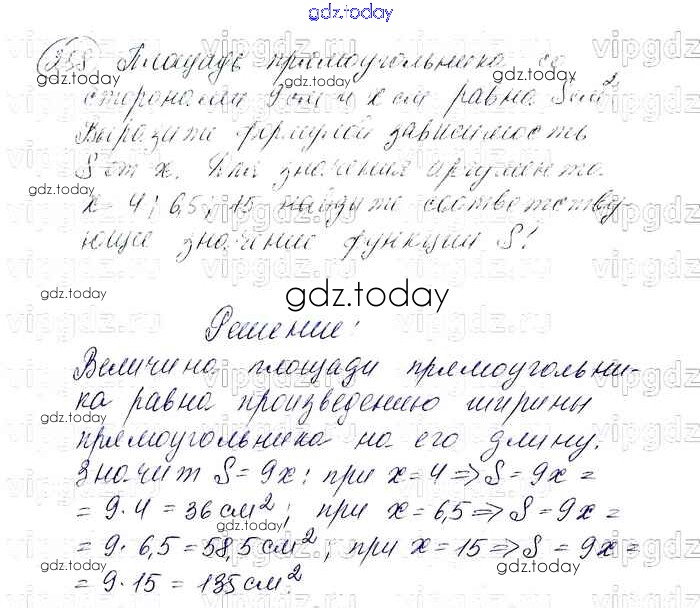 gdz.today
258 Площадь прямоугольника со
сторонами 9 см и x см равна S см²
Выразите формулой зависимость
S от x. Для значения аргумента
x = 4; 6,5; 15 найдите соответству-
ющие значение функции S!
gdz.today
Решение:
Величина площади прямоугольни-
ка равна произведению ширины
прямоугольника на его длину.
Значит S = 9x: при x = 4 => S = 9x =
= 9 · 4 = 36 см²; при x = 6,5 => S = 9x =
= 9 · 6,5 = 58,5 см²; при x = 15 => S = 9x =
= 9 · 15 = 135 см².